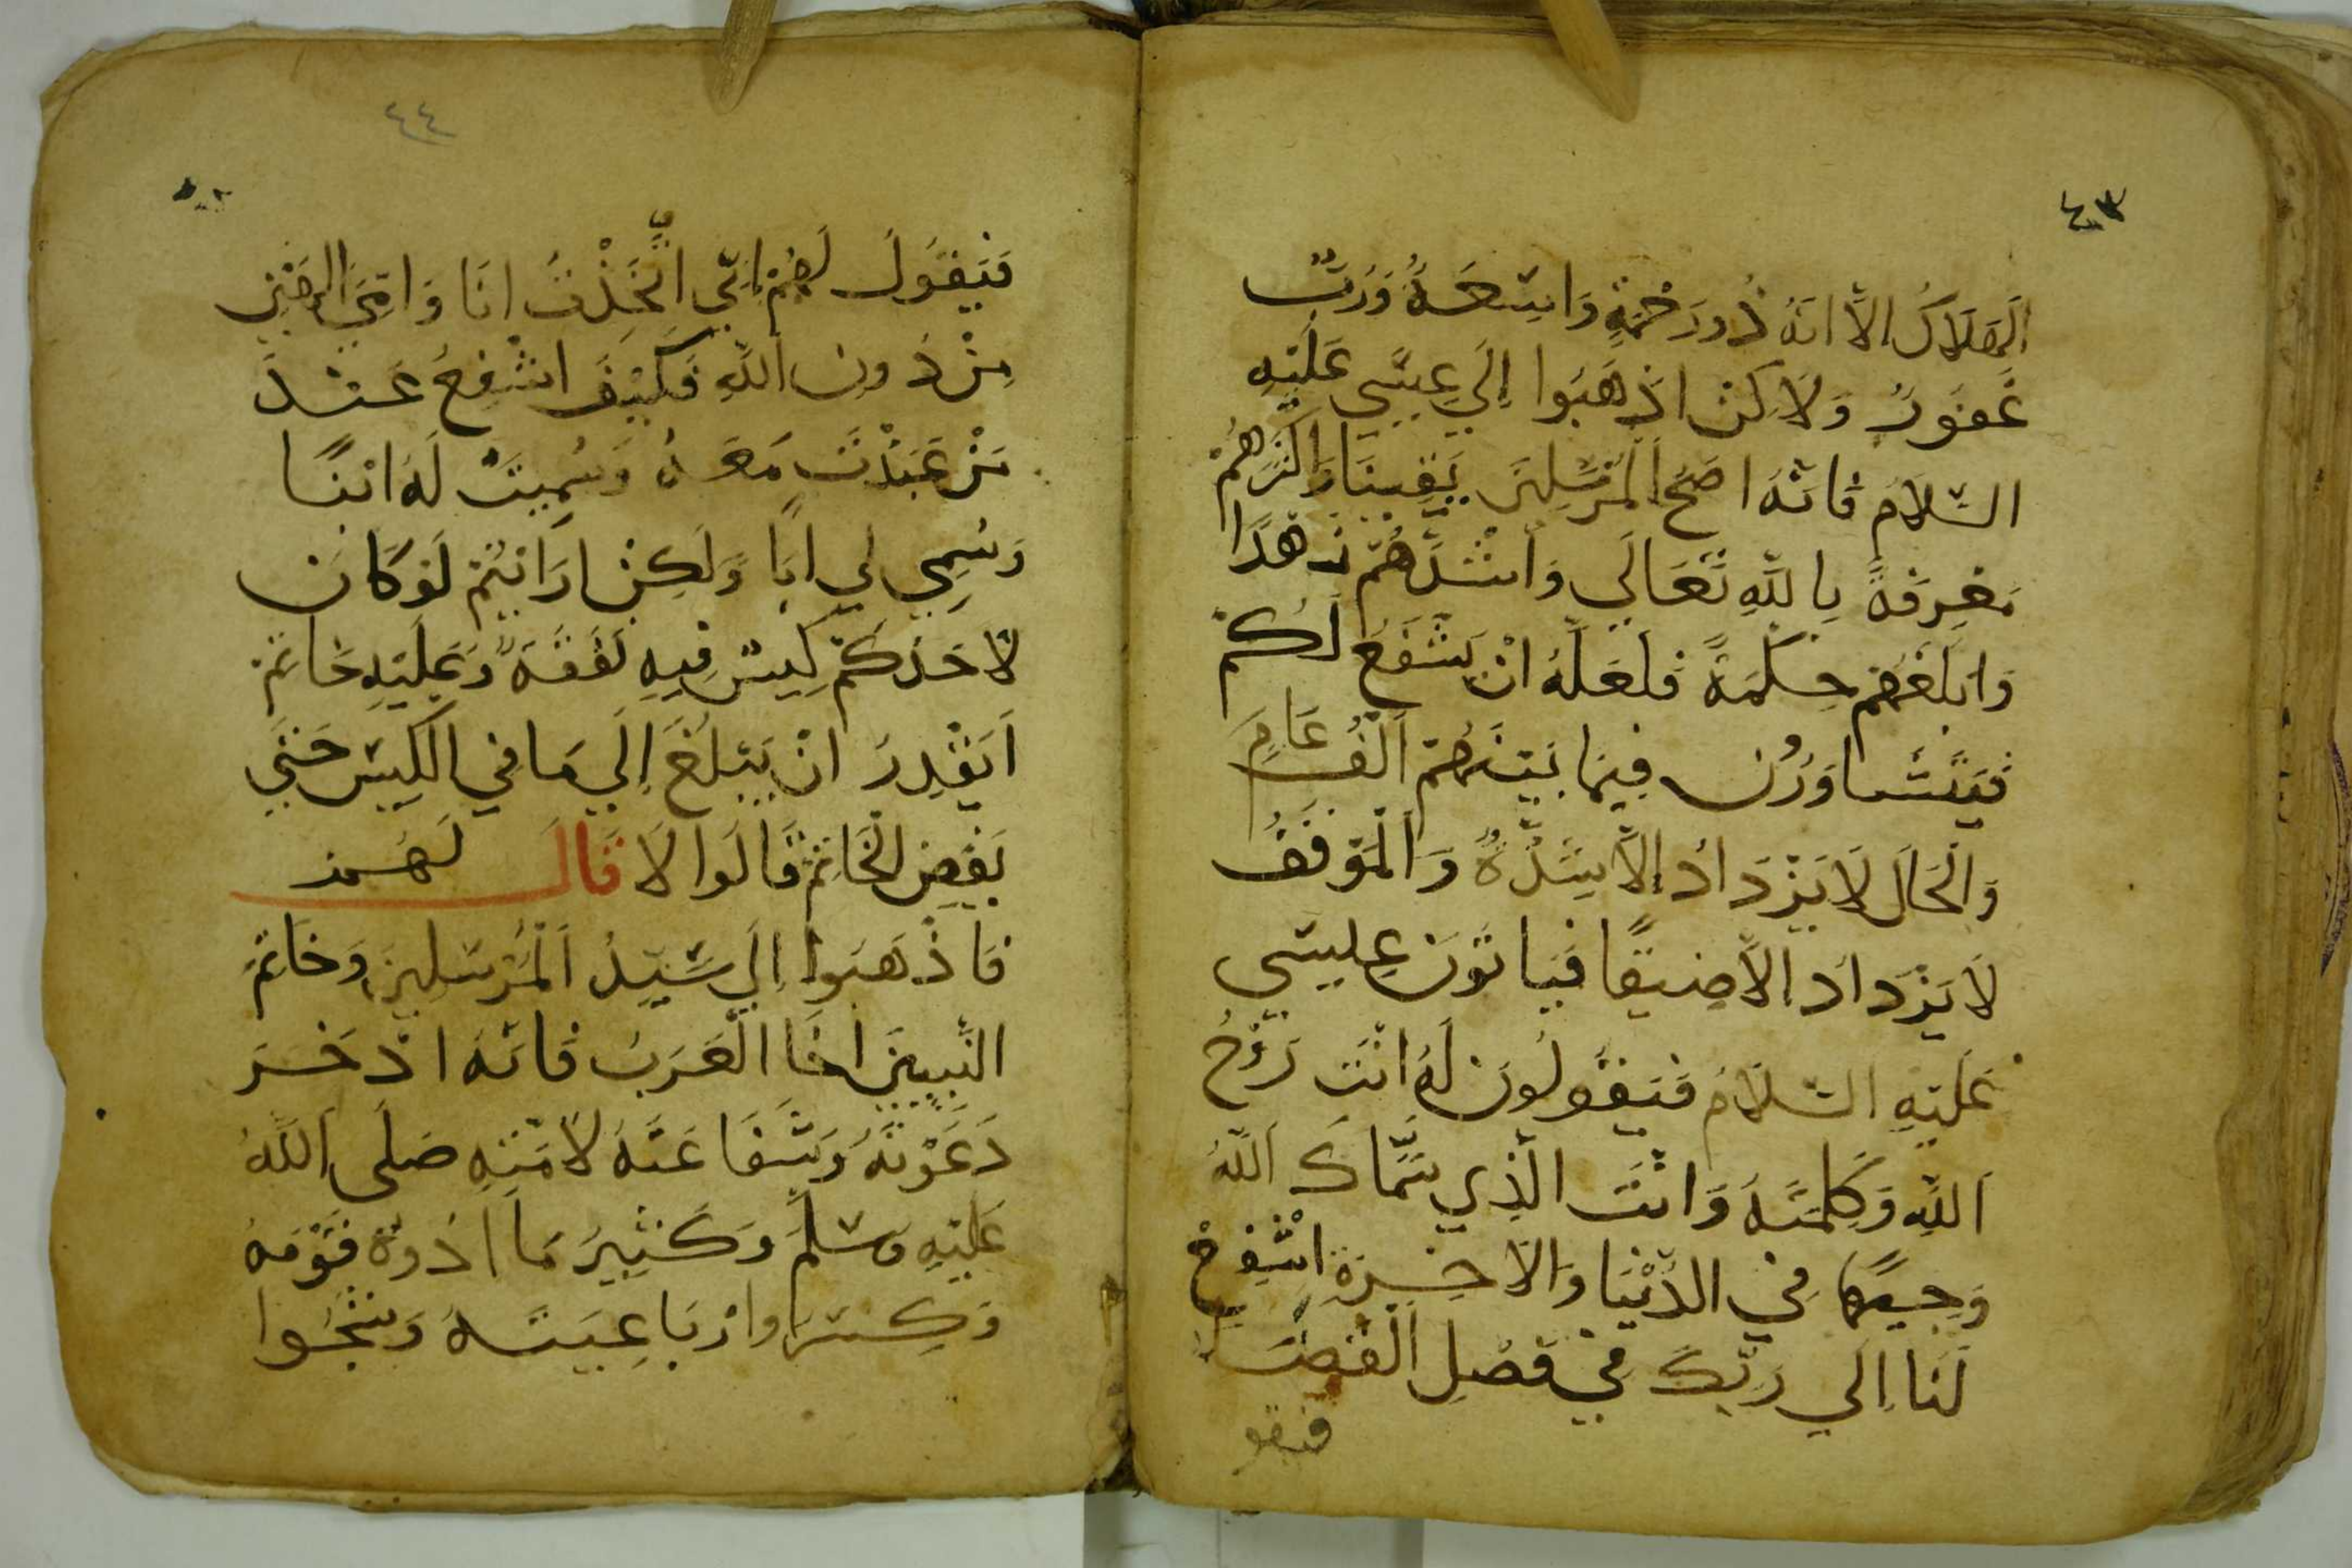 ٤٣
الهَلَاكُ الاَّ انهُ ذُو رَحْمَةٍ وَاسِعَةٌ وَرَبٌّ
غَفُورٌ وَلَا كِن اذهَبُوا إِلَي عِيسَي عَلَيْهِ
السَّلَامُ فَانَّهُ اصَحُّ المُرْسَلِينَ يَقِينًا وَاكثرَهُمْ
مَعْرِفَةً بِاللَّهِ تَعَالَي وَاشَدَّهُمْ زهدًا
وَابلَغَهُم حِكمَةً فَلَعَلَّهُ انْ يَشْفَعَ لَكُمْ
فَيَتَشَاوَرُون فِيمَا بَيْنَهُمْ الْفُ عَامٍ
وَالْحَالُ لَا يَزْدَادُ إِلاَّ شِدَّةً وَالْمَوقَفُ
لَا يَزْدَاد الاَّ ضِيقًا فَيَاتُونَ عِيسَي
عَلَيْهِ السَّلَامُ فَيَقُولُونَ لَهُ انْتَ رُوْحُ
اللَّهِ وَكَلِمَتَهُ وَانْتَ الَّذِي سَمَّاكَ اللَّهُ
وَجِيهًا فِي الدُّنْيَا وَالاخِرَةِ اشْفِعْ
لَنَا إِلَي رَبِّكَ فِي فَصْلِ الْقَضَاء
فيقو
٤٤
فَيَقُولُ لَهُمْ إِنِّي اتُّخِذْتُ انَا وَامِّيَ الهَيْنِ
مِنْ دُونِ اللَّهِ فَكَيْفَ اشْفِعُ عَنْدَ
مَنْ عَبَدْتُ مَعَهُ وَسُمِيتُ لَهُ ابْنًا
وَسُمِي لِي ابًا وَلَكِنْ ارَايْتُمْ لَوْ كَانَ
لاحَدِكُمْ كِيسٌ فِيهِ نَفَقَةٌ وَعَلَيْهِ خَاتَمٌ
اَيَقْدِرُ انْ يَبْلُغَ إِلَي مَا فِي الْكِيسِ حَتَّي
يَفِضَ الْخَاتَمَ قَالُوا لَا قَالَ لَهُمْ
فَاذْهَبُوا إِلَي سَيِّدُ الْمُرْسَلِينَ وَخَاتَمُ
النَّبِيِينَ اخَا الْعَرَبُ فَانَّهُ ادْخَرَ
دَعْوَتَهُ وَشَفَاعَتَهُ لاُمَّتِهِ صَلَى اللَّهُ
عَلَيْهِ وَسَلَّمَ وَكَثِيرُ مَا اذُوهُ قَوْمَهُ
وَكِسَرَا وارْبَاعِيَتَهُ وَشَجُوا